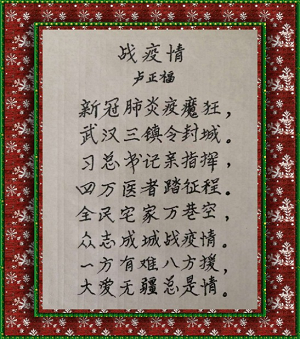 战疫情
卢正福
新冠肺炎疫魔狂，
武汉三镇令封城。
习总书记亲指挥，
四万医者踏征程。
全民宅家万巷空，
众志成城战疫情。
一方有难八方援，
大爱无疆总是情。